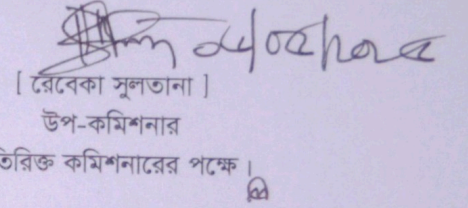 [ রেবেকা সুলতানা ]
উপ-কমিশনার
তিরিক্ত কমিশনারের পক্ষে।